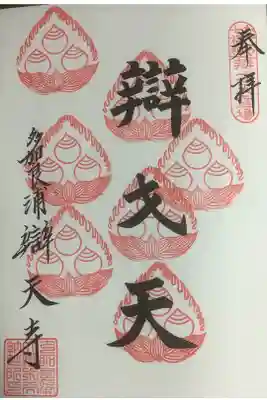 奉拝
辯才天
多賀良浦辯天寺